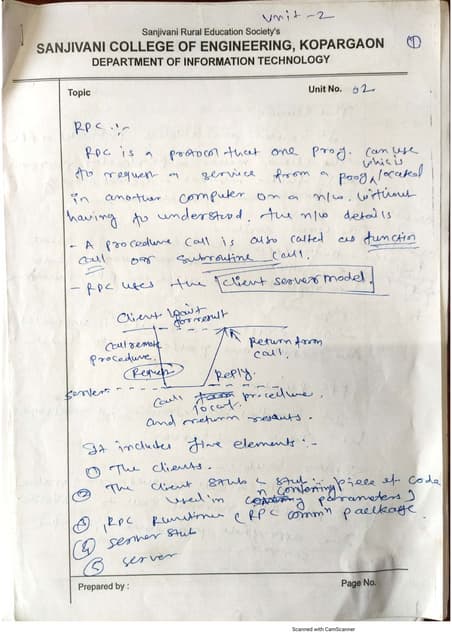 Unit-2
Sanjivani Rural Education Society's
SANJIVANI COLLEGE OF ENGINEERING, KOPARGAON
DEPARTMENT OF INFORMATION TECHNOLOGY
1
Topic
Unit No. 02
RPC :-
RPC is a protocol that one prog. can use
to request a service from a prog which is located
in another computer on a n/w. without
having to understood. the n/w details
- A procedure call is also called as function
call or subroutine call.
- RPC uses the client server model.
Client wait
for result
Call remote
procedure.
Return from
call.
Request
Reply.
Server
Call local procedure
and return results.
It includes five elements :-
1 The clients.
2 The client stub & stub : piece of code
used in converting parameters)
3 RPC Runtime (RPC comm^n package.
4 server stub
5 server
Prepared by :
Page No.
Scanned with CamScanner